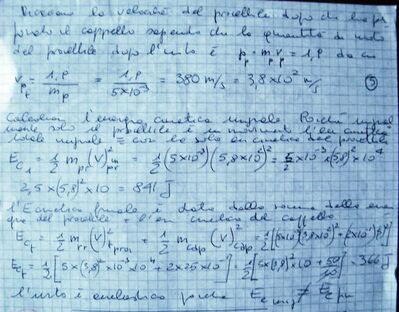 la velocità del proiettile dopo che ha
il cappello sapendo che la quantità di moto
del proiettile dopo l'urto è p_p = m_p v_p = 1,9 da cui
v_pf = 1,9 / m_p = 1,9 / 5×10⁻³ = 380 m/s = 3,8×10² m/s
l'energia cinetica iniziale. Poiché
solo il proiettile è in movimento l'en. cinetica
totale iniziale è solo cinetica del proiettile
E_c1 = 1/2 m_pr (v)²_pr = 1/2 (5×10⁻³)(5,8×10²)² = 5/2 ×10⁻³ ×(5,8)² × 10⁴
2,5 × (5,8)² × 10 = 841 J
l'E cinetica finale è data dalla somma delle
del proiettile + l'en cinetica del cappello
E_cf = 1/2 m_pr (v)²_fpror + 1/2 m_capp (v)²_capp = 1/2 [(5×10⁻³)(3,8×10²)²
E_cf = 1/2 [5×(3,8)²×10⁻³×10⁴ + 2×25×10⁻¹] = 1/2 [5×(3,8)²×10 + 50/10] = 366 J
l'urto è anelastico poiché E_c ≠ E_c fin